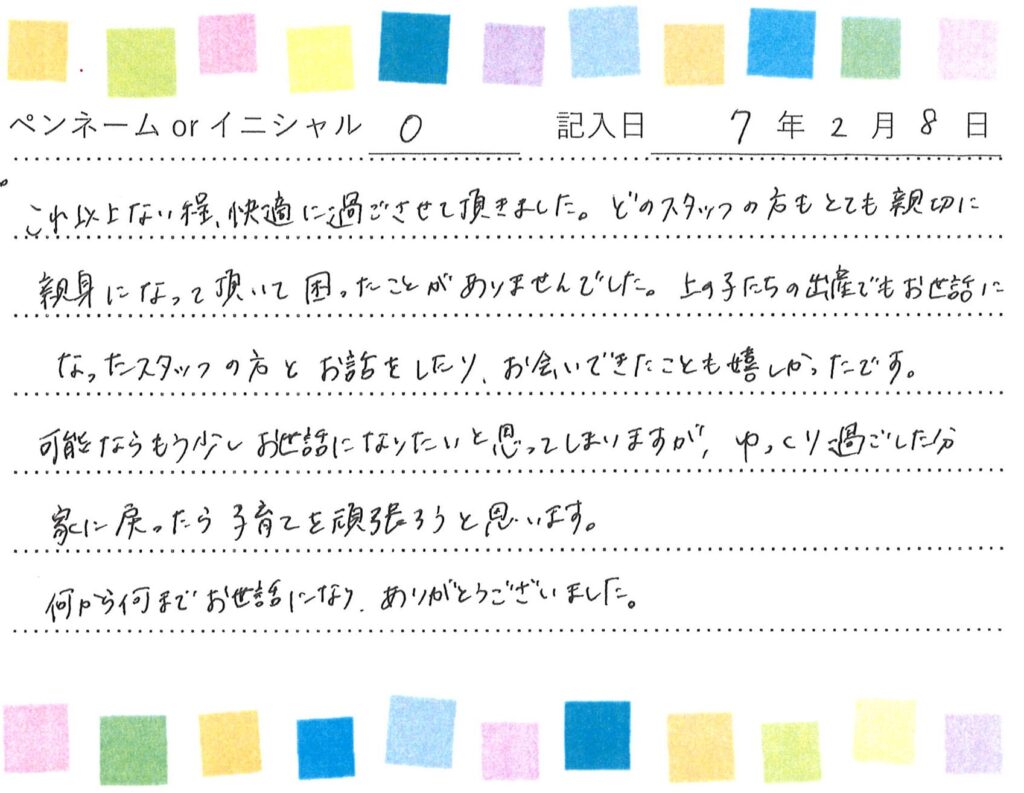 ペンネーム or イニシャル O 記入日 7年2月8日
これ以上ない程、快適に過ごさせて頂きました。どのスタッフの方もとても親切に
親身になって頂いて困ったことがありませんでした。上の子たちの出産でもお世話に
なったスタッフの方とお話をしたり、お会いできたことも嬉しかったです。
可能ならもう少しお世話になりたいと思ってしまいますが、ゆっくり過ごした分
家に戻ったら子育てを頑張ろうと思います。
何から何までお世話になり、ありがとうございました。